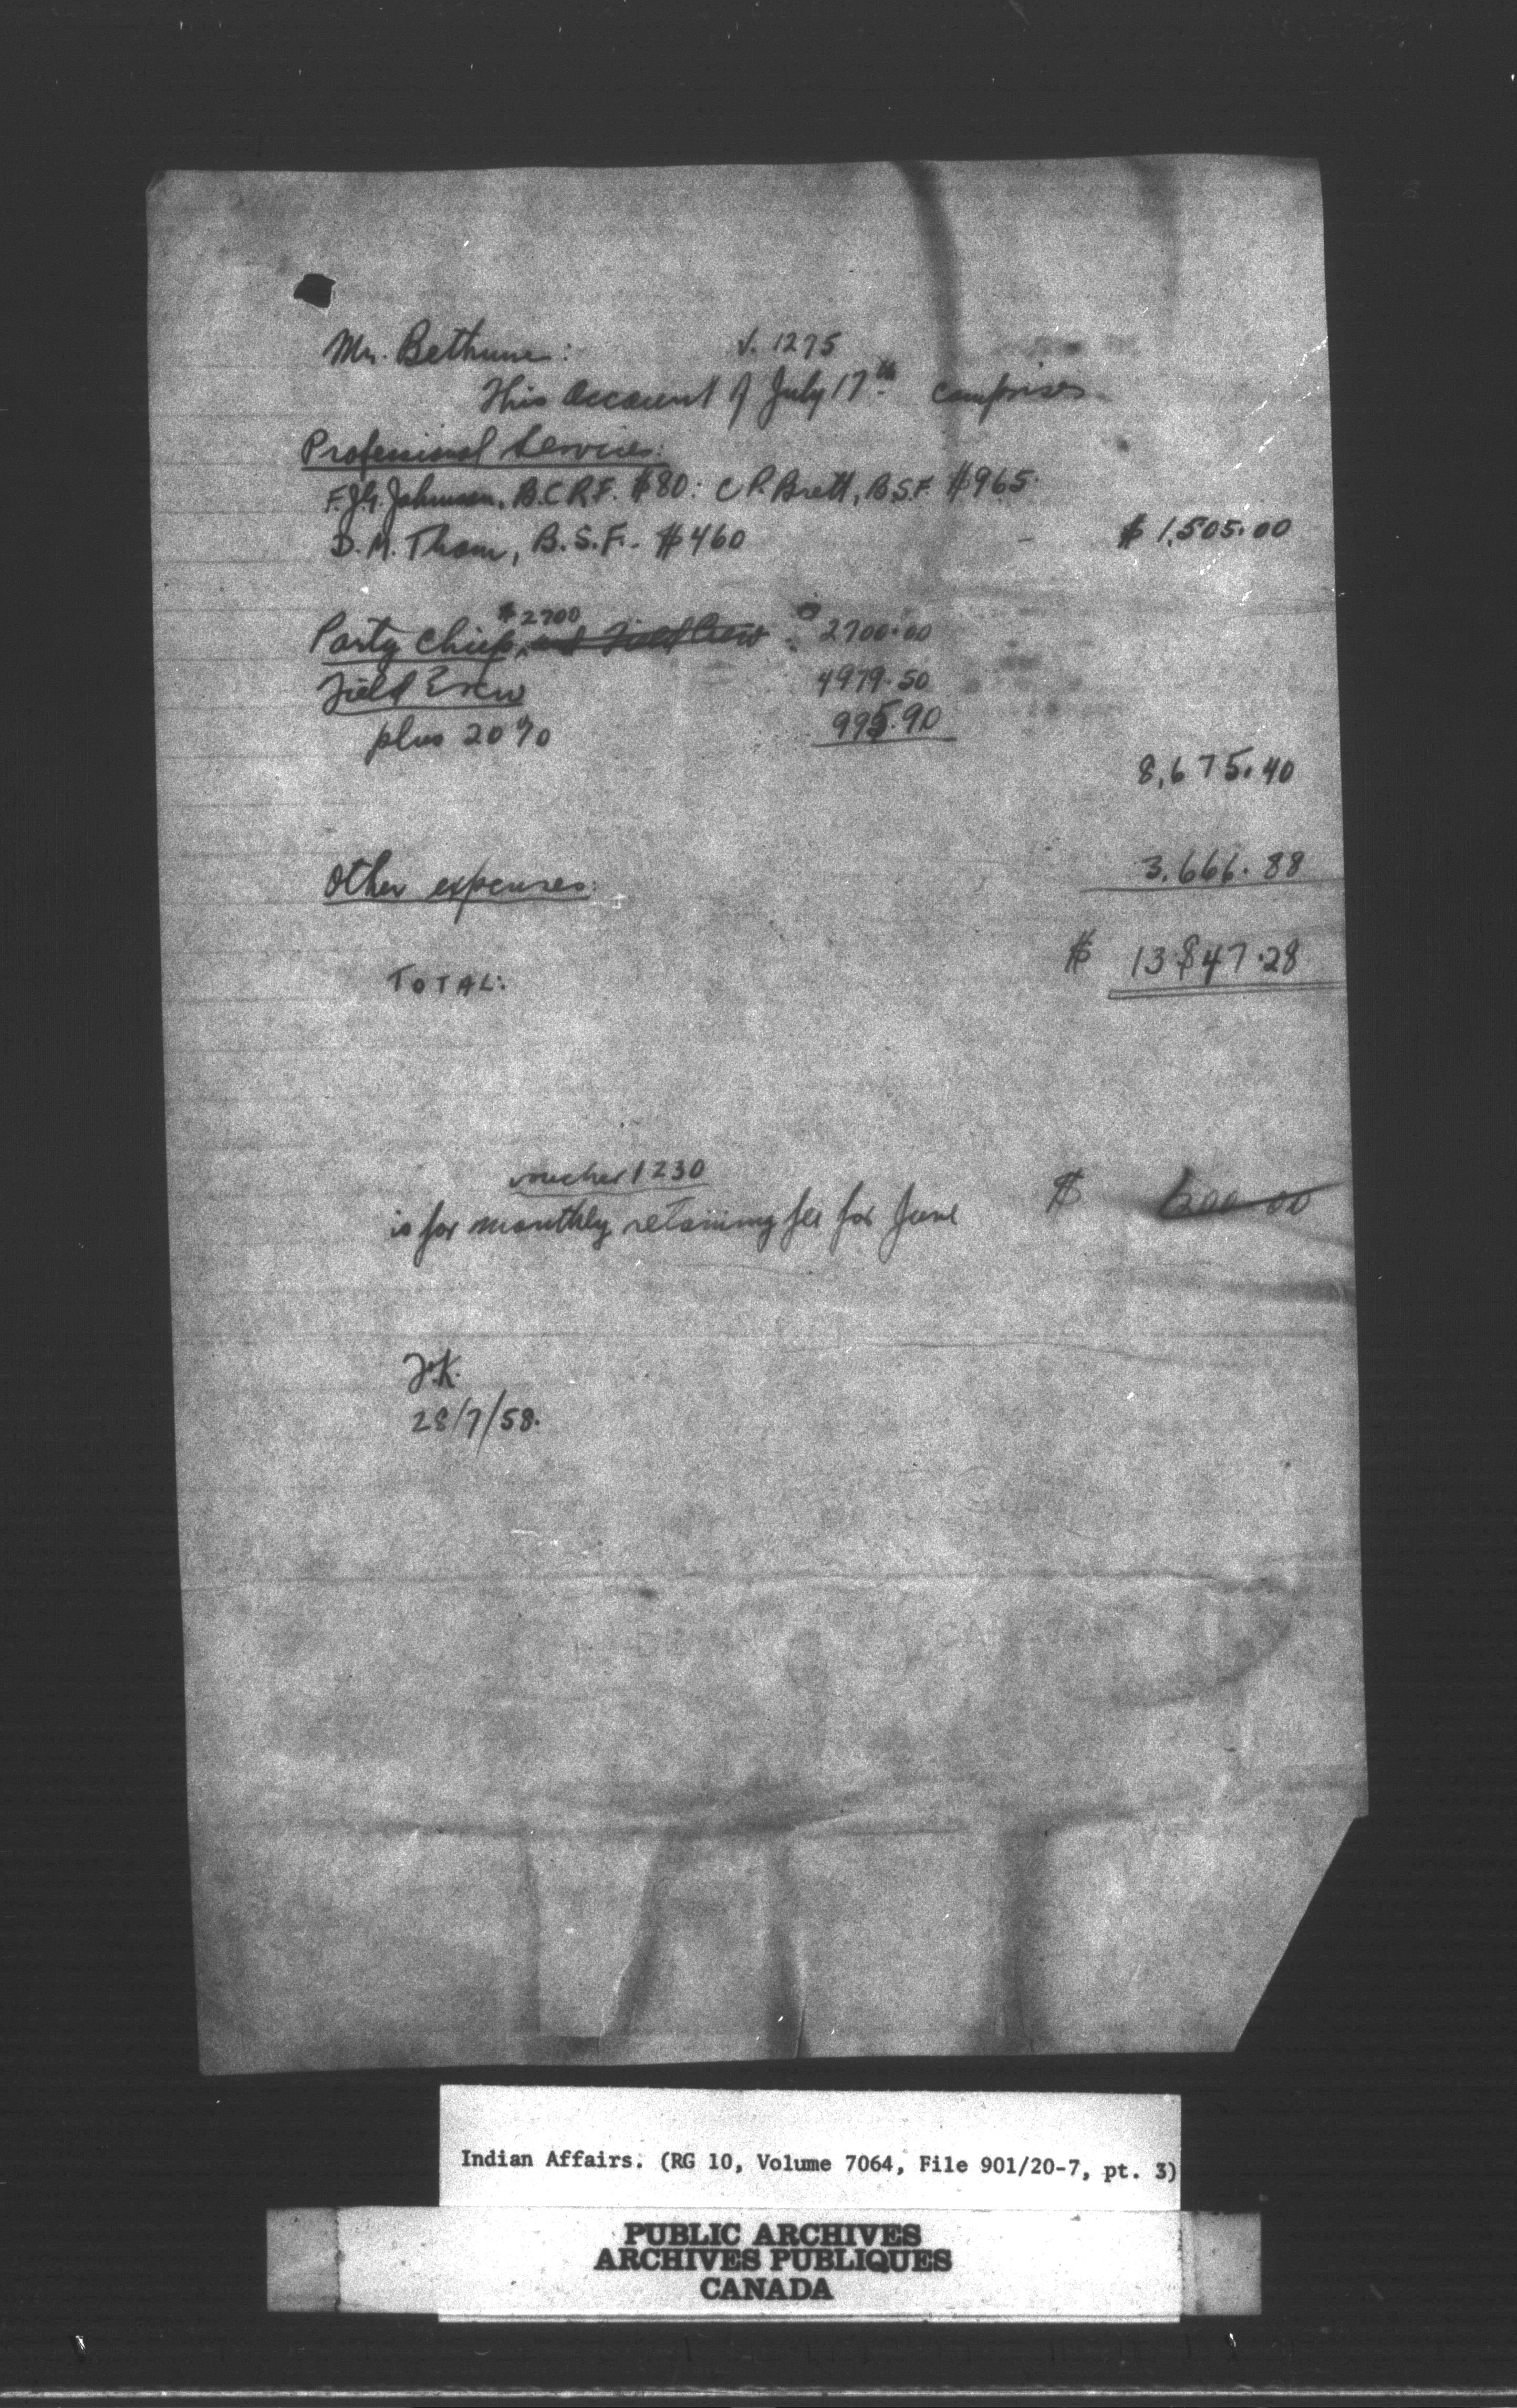 Mr. Bethune: v. 1275
This account of July 17th comprises
Professional Services:
F.J.G. Johnson, B.C.R.F. $80: C P. Brett, B.S.F. $965
D. M. Thom, B.S.F. $460 - $ 1,505.00
$2700
Party Chief, and Field Crew : 2700.00
Field Crew 4979.50
plus 20% 995.90
8,675.40
Other expenses: 3,666.88
TOTAL: $ 13847.28
voucher 1230
is for monthly retaining fee for June $ 600.00
28/7/58.
Indian Affairs. (RG 10, Volume 7064, File 901/20-7, pt. 3)
PUBLIC ARCHIVES
ARCHIVES PUBLIQUES
CANADA